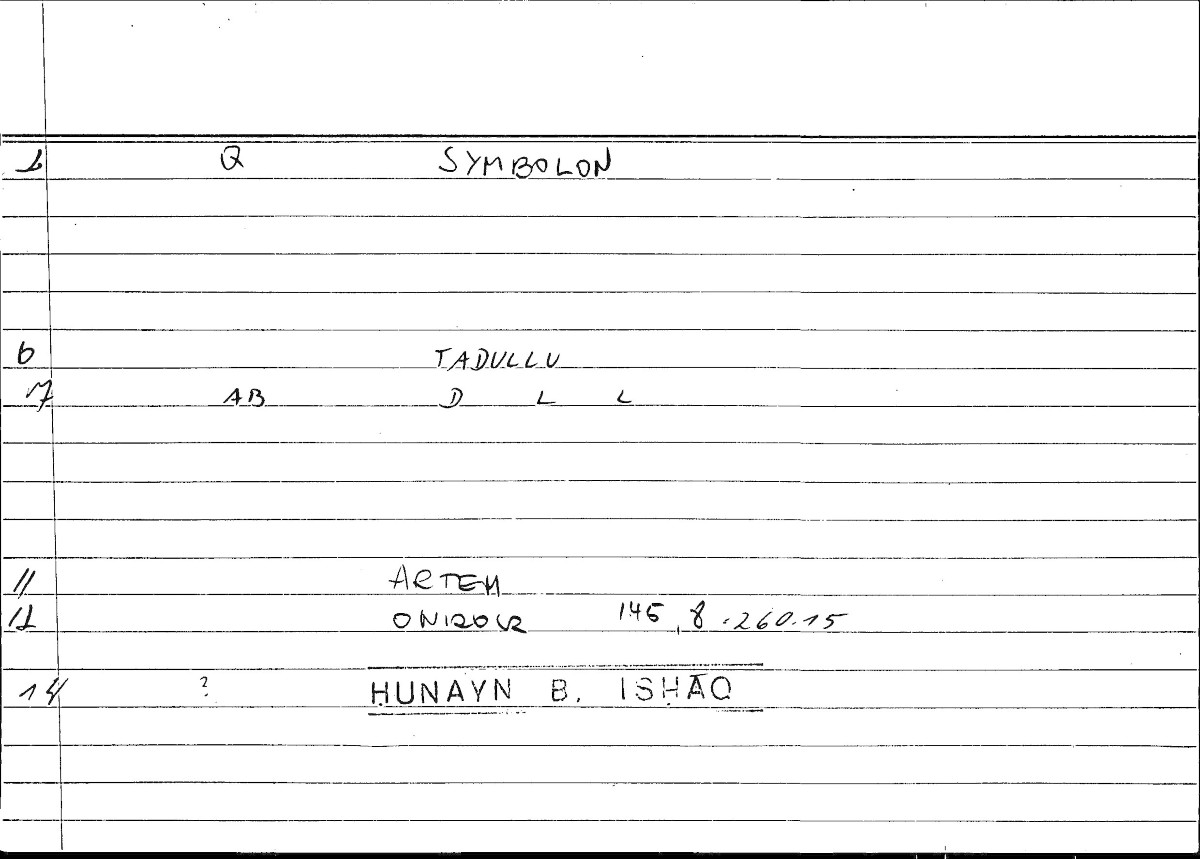 1 Q SYMBOLON
6 TADULLU
7 AB D L L
11 ARTEM
12 ONIROCR 145,8.260.15
14 ? ḤUNAYN B. ISḤĀQ